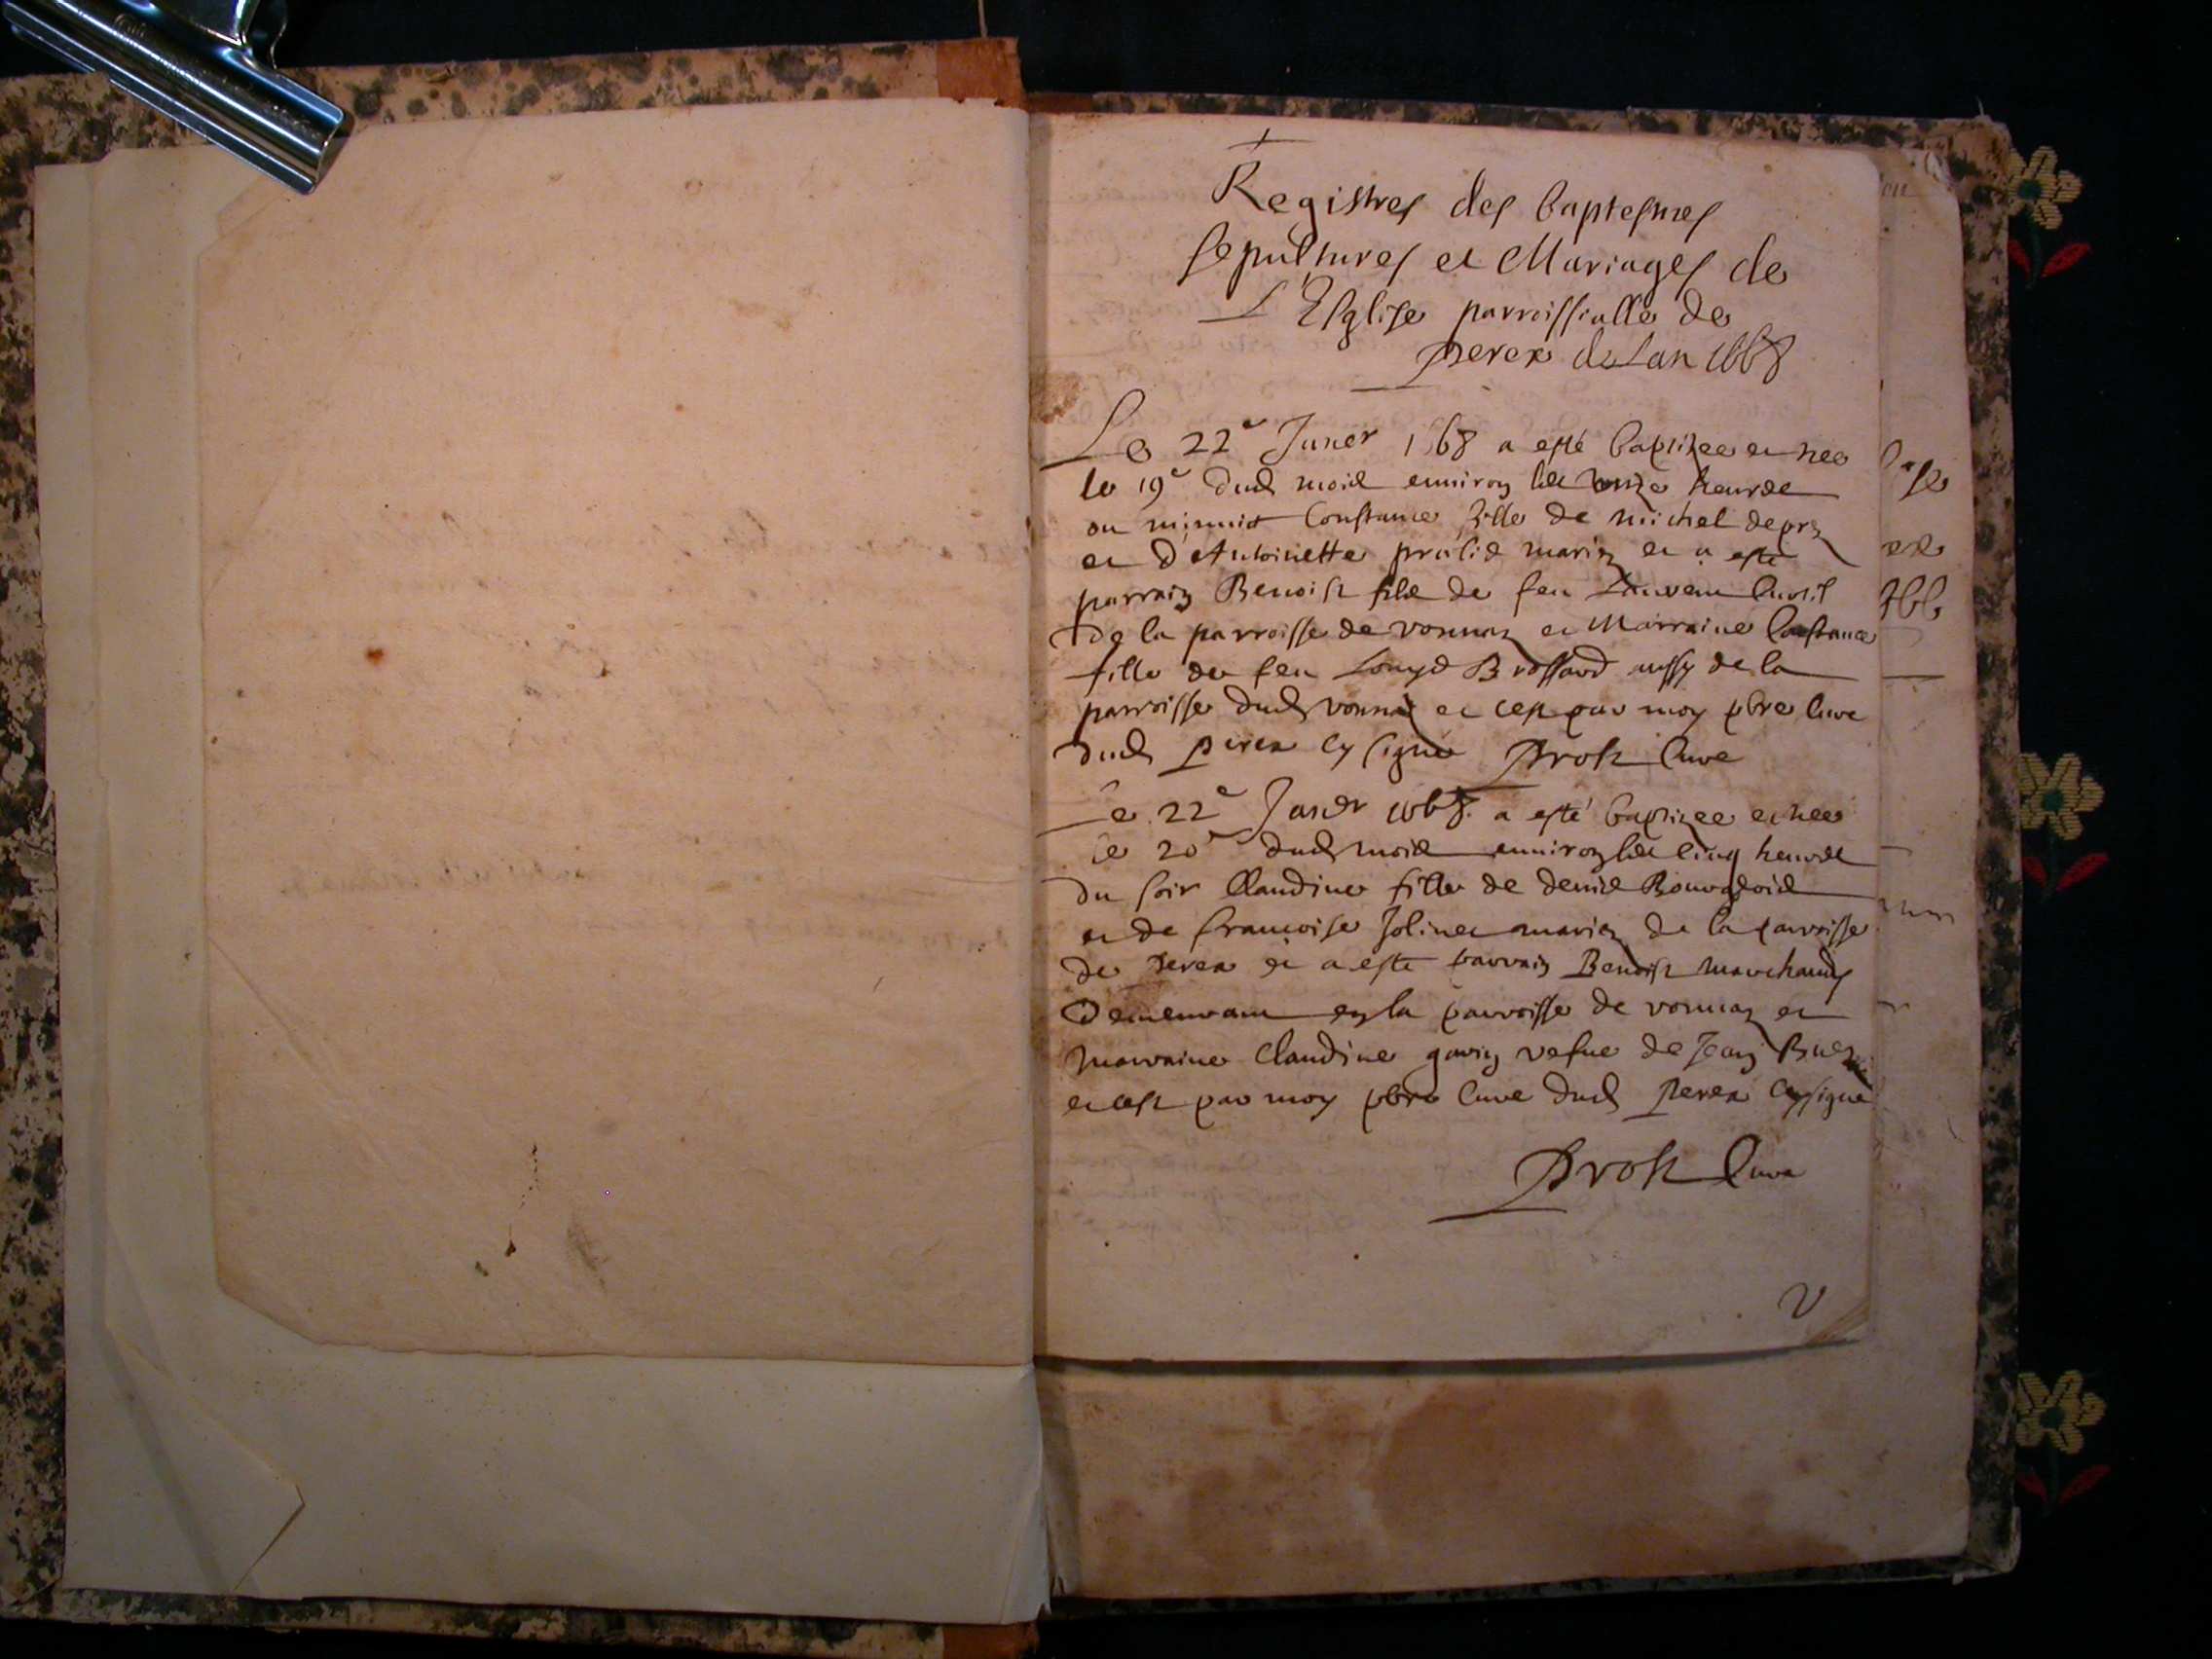 Registres des baptesmes
sepultures et Mariages de
L'Eglise parroissialle de
perex de Lan 1668
Le 22e Janer 1668 a esté baptizee et nee
le 19e dud mois environ les unze heures
ou minuit Constance fille de michel
et d'Antoinette pralis mariez et a esté
parrain Benoist filz de feu
de la parroisse de vonnaz et Marraine Constance
fille de feu Louys Brossard aussy de la
parroisse dud vonnaz et cest par moy pbre cure
dud perex cy signé Prost Cure
Le 22e Janer 1668 a esté baptizee et nee
le 20e dud mois environ les cinq heures
du soir Claudine fille de denis Bourgeois
et de francoise Jolinet mariez de la parroisse
de perex et a esté parrain Benoist marchand
Demeurant en la parroisse de vonnaz et
marraine Claudine gavin vefue de Jean
et cest par moy pbre cure dud perex cy signé
Prost Cure